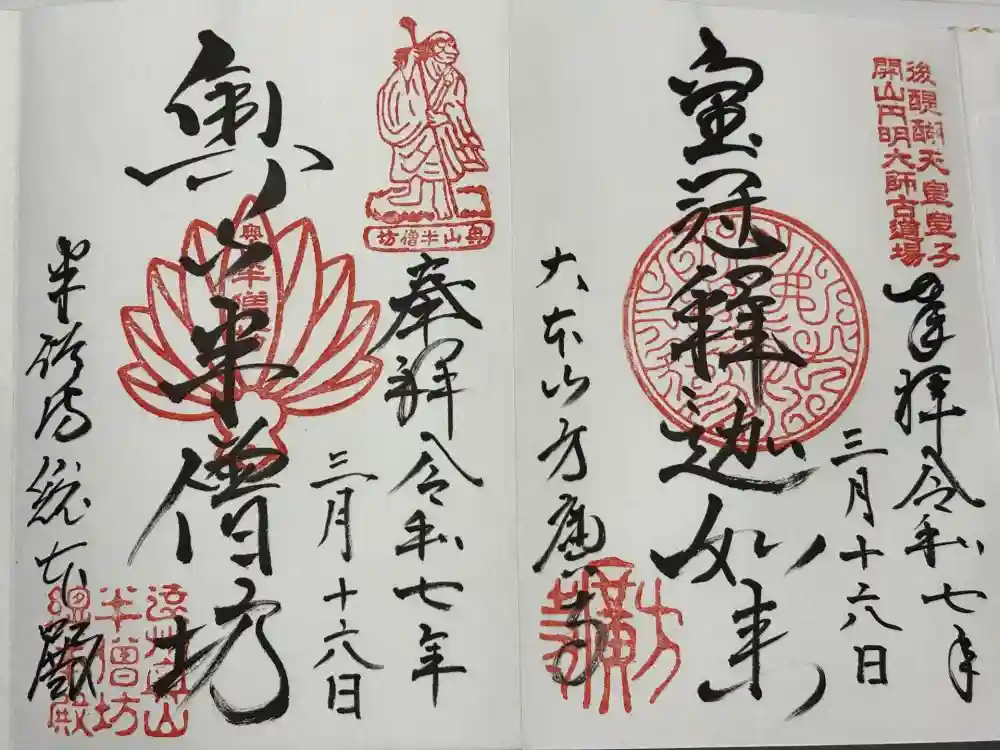 後醍醐天皇皇子
開山円明大師古道場
奉拝 令和七年
三月十六日
宝冠釋迦如来
大本山方廣寺
方廣寺
奥山半僧坊
奉拝 令和七年
三月十六日
奥山半僧坊
奥山半僧坊
半僧坊総本殿
遠州奥山
半僧坊
總本殿